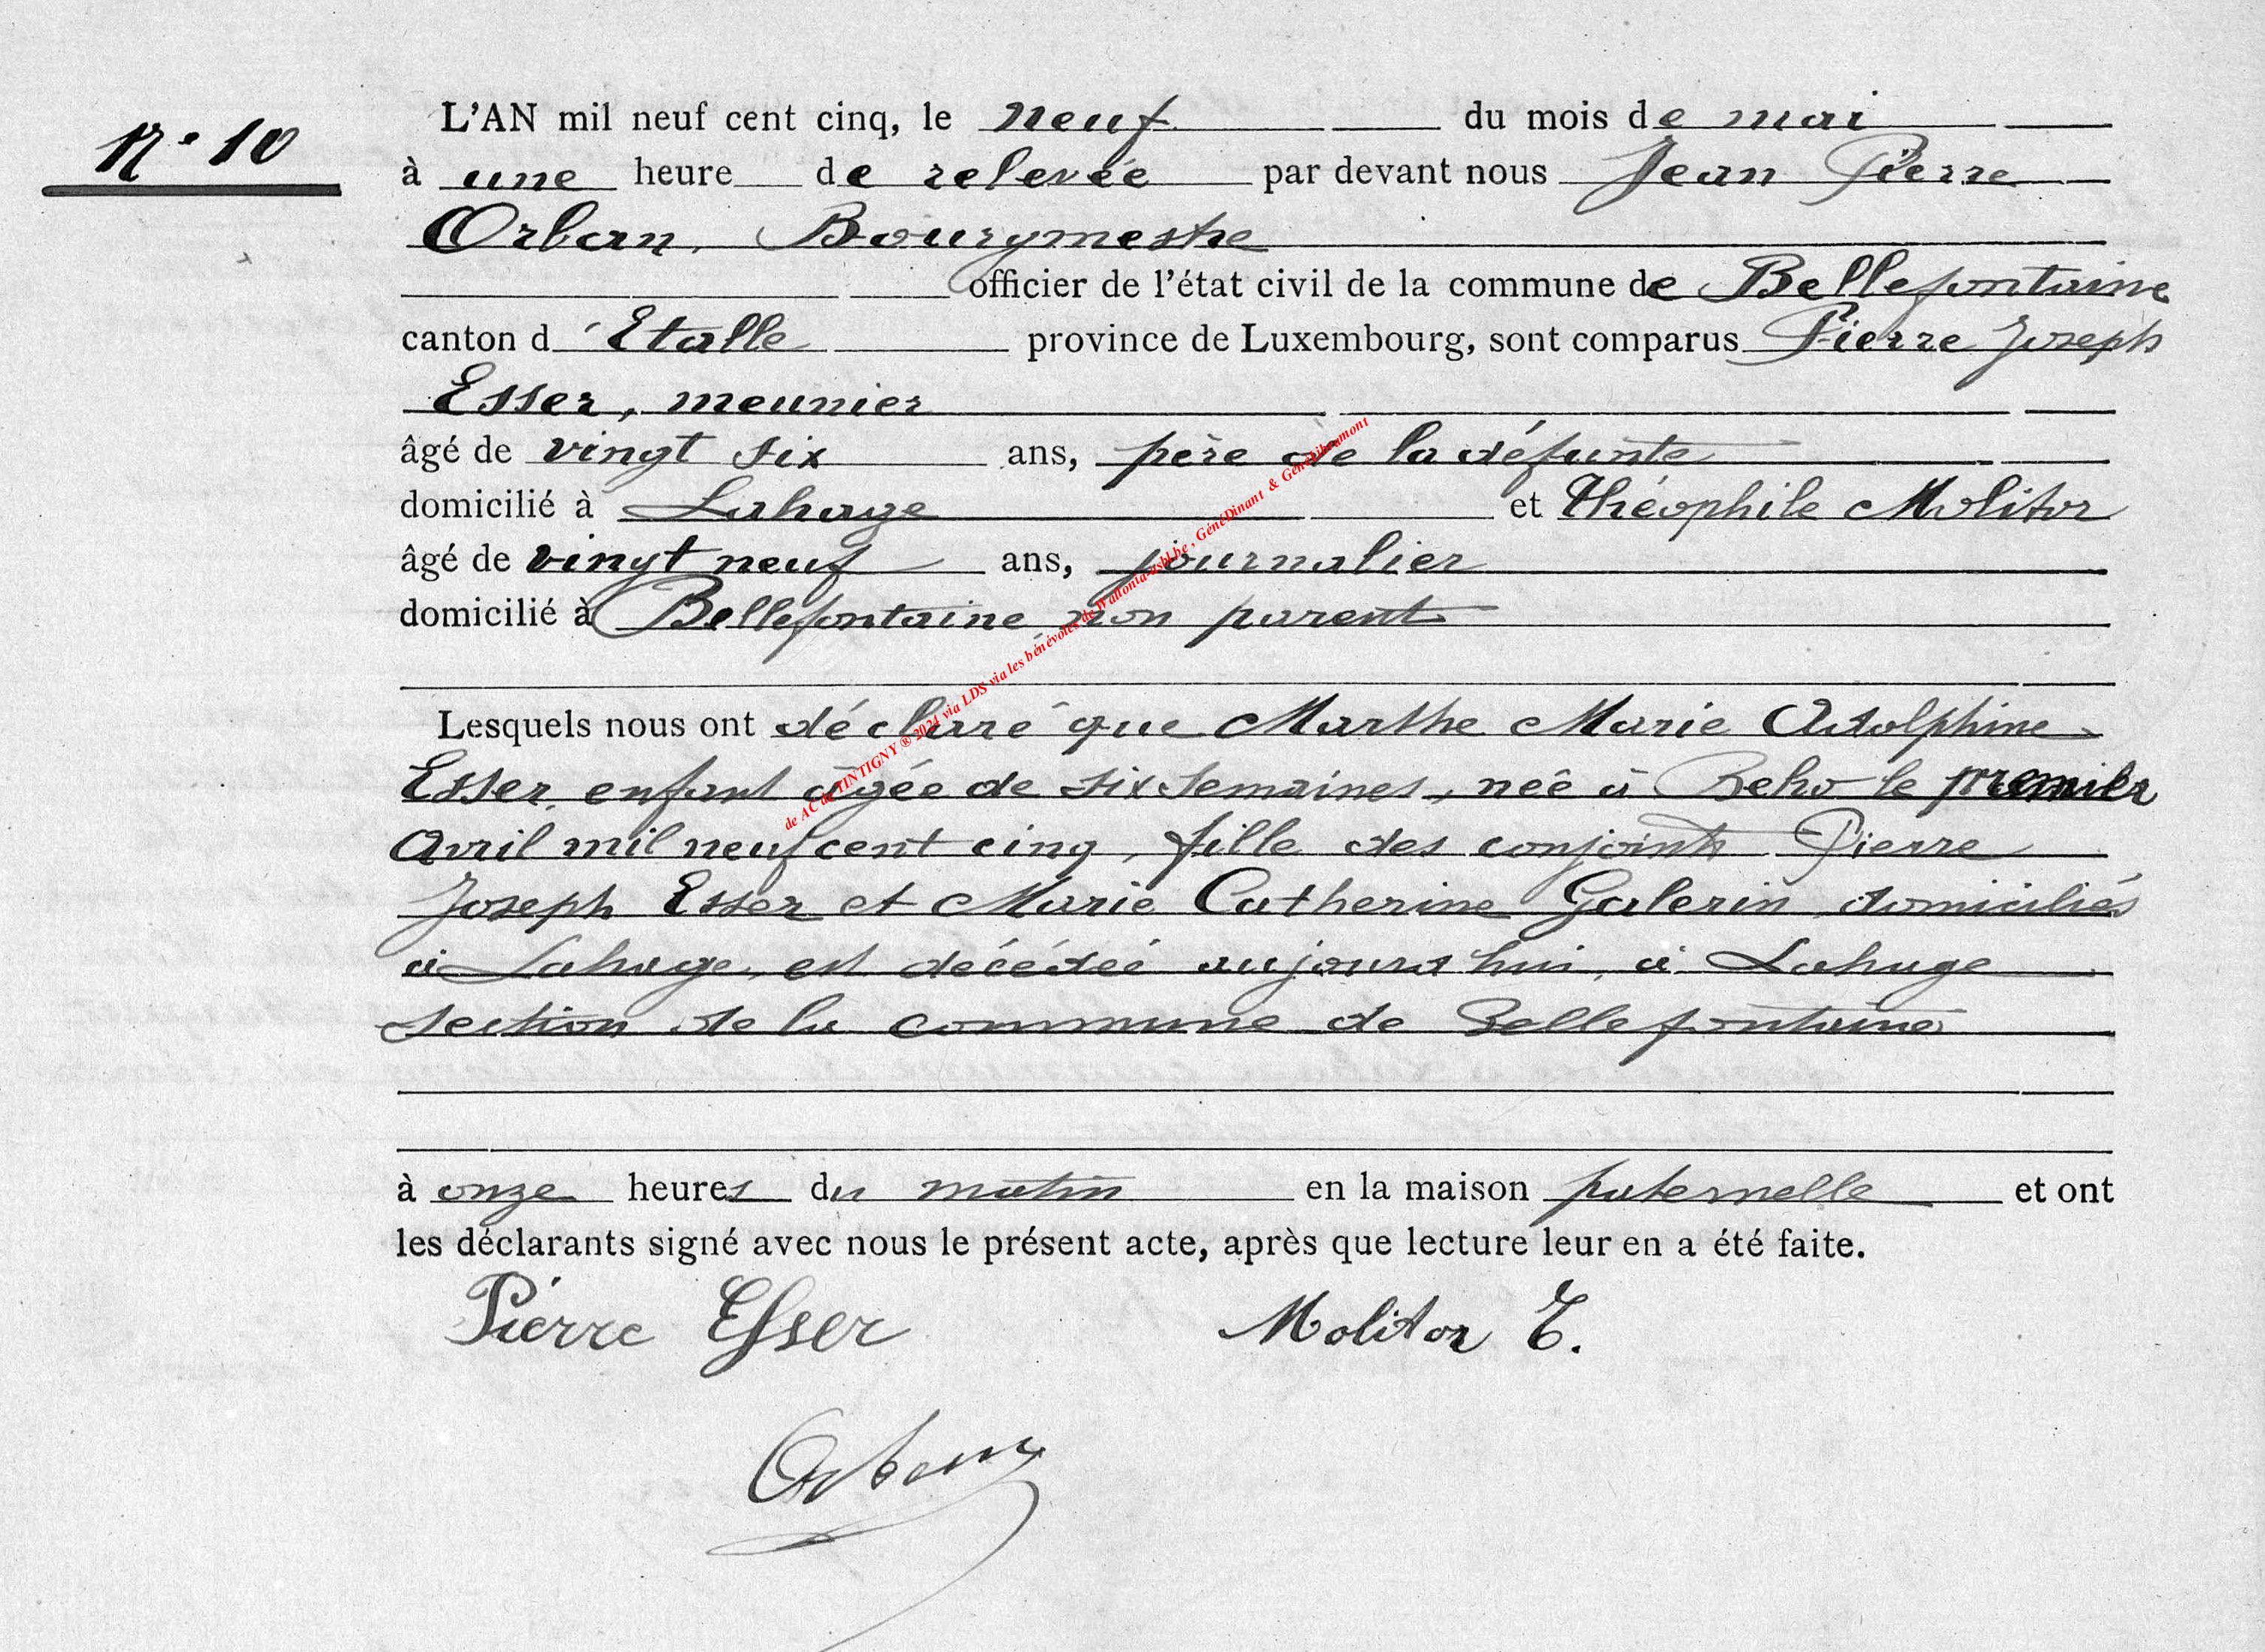 N° 10
L'AN mil neuf cent cinq, le neuf du mois de mai
à une heure de relevée par devant nous Jean Pierre
Orban, Bourgmestre
officier de l'état civil de la commune de Bellefontaine
canton d'Etalle province de Luxembourg, sont comparus Pierre Joseph
Esser, meunier
âgé de vingt six ans, père de la défunte
domicilié à Lahage et Théophile Molitor
âgé de vingt neuf ans, journalier
domicilié à Bellefontaine non parent
Lesquels nous ont déclaré que Marthe Marie Adolphine
Esser, enfant âgée de six semaines, née à Beho le premier
Avril mil neuf cent cinq, fille des conjoints Pierre
Joseph Esser et Marie Catherine Galerin domiciliés
à Lahage, est décédée aujourd'hui, à Lahage
section de la commune de Bellefontaine
à onze heures du matin en la maison paternelle et ont
les déclarants signé avec nous le présent acte, après que lecture leur en a été faite.
Pierre Esser Molitor T.
Orban
de AC de TINTIGNY ® 2024 via LDS via les bénévoles de Wallonia-asbl.be, GénéDinant & GénéLibramont